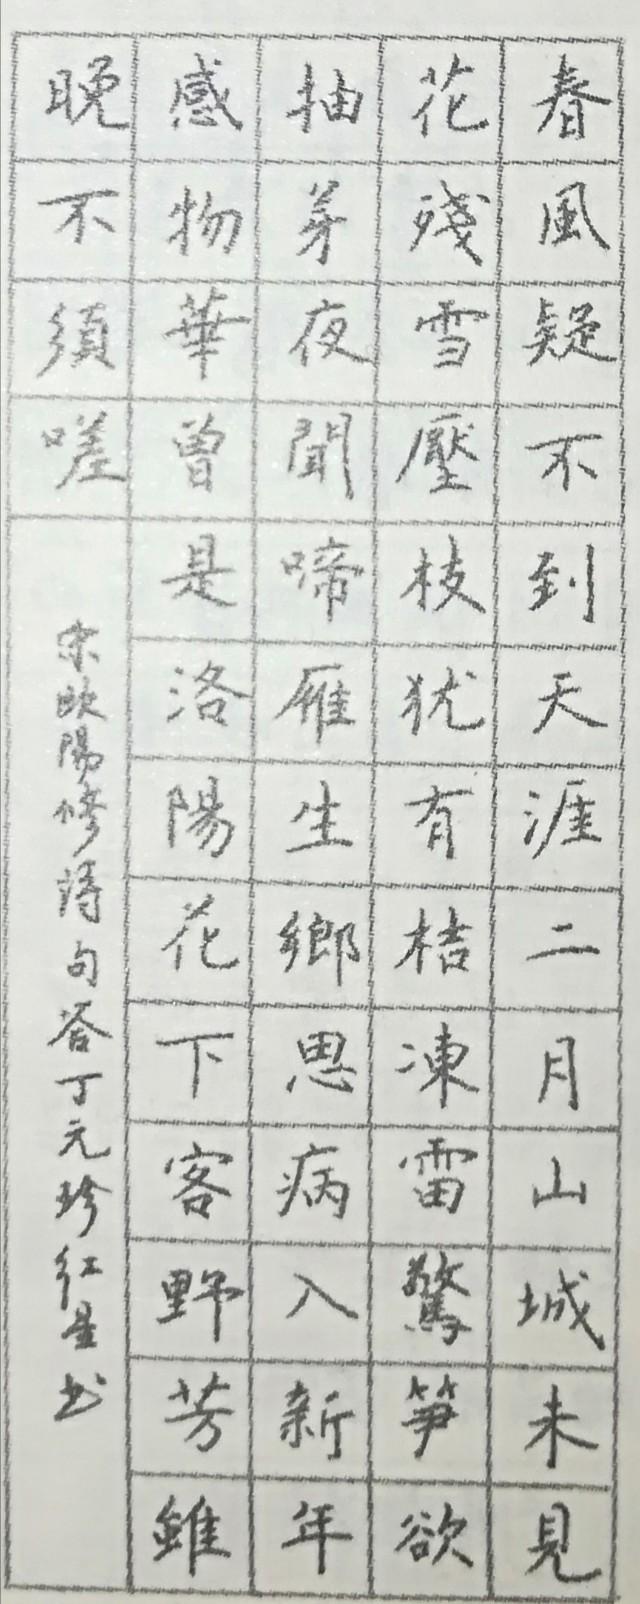 春風疑不到天涯二月山城未見
花殘雪壓枝猶有桔凍雷驚笋欲
抽芽夜聞啼雁生鄉思病入新年
感物華曾是洛陽花下客野芳雖
晚不須嗟
宋欧陽修詩句答丁元珍红星书